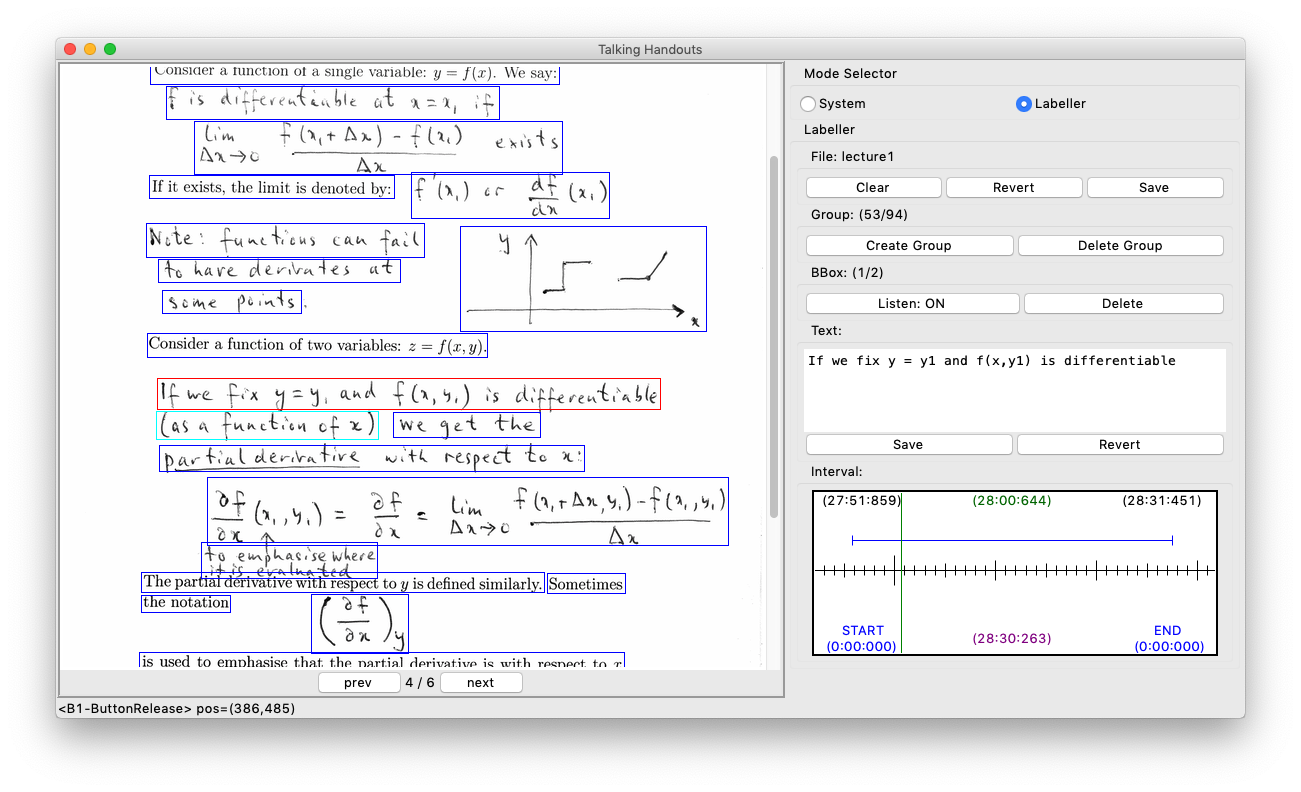 Talking Handouts
Consider a function of a single variable: y = f(x). We say:
f is differentiable at x = x₁ if
lim Δx→0 f(x₁+Δx) - f(x₁) / Δx exists
If it exists, the limit is denoted by: f'(x₁) or df/dx (x₁)
Note: functions can fail
to have derivates at
some points.
y
x
Consider a function of two variables: z = f(x, y).
If we fix y = y₁ and f(x,y₁) is differentiable
(as a function of x) we get the
partial derivative with respect to x:
∂f/∂x (x₁,y₁) = ∂f/∂x = lim Δx→0 f(x₁+Δx,y₁) - f(x₁,y₁) / Δx
to emphasise where
it is evaluated
The partial derivative with respect to y is defined similarly. Sometimes
the notation
(∂f/∂x)y
is used to emphasise that the partial derivative is with respect to x
prev 4 / 6 next
<B1-ButtonRelease> pos=(386,485)
Mode Selector
System Labeller
Labeller
File: lecture1
Clear Revert Save
Group: (53/94)
Create Group Delete Group
BBox: (1/2)
Listen: ON Delete
Text:
If we fix y = y1 and f(x,y1) is differentiable
Save Revert
Interval:
(27:51:859) (28:00:644) (28:31:451)
START END
(0:00:000) (28:30:263) (0:00:000)